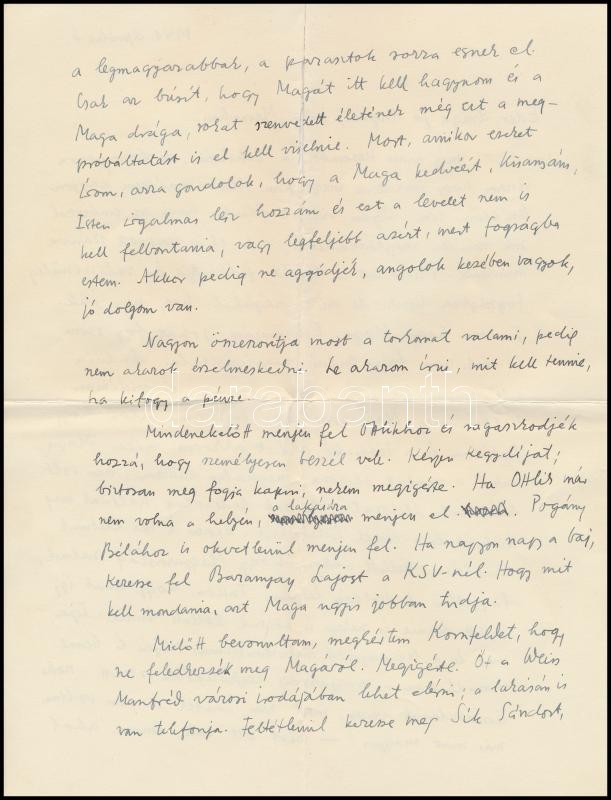 a legmagyarabbak, a paraszto​k sorra esnek el.
Csak az búsít, hogy Magát itt kell hagynom és a
Maga drága, sokat szenvedett életének még ezt a meg-
próbáltatást is el kell viselnie. Most, amikor ezeket
írom, arra gondolok, hogy a Maga kedvéért, Kisanyám,
Isten irgalmas lesz hozzám és ezt a levelet nem is
kell felbontania, vagy legfeljebb azért, mert fogságba
estem. Akkor pedig ne aggódjék, angolok kezében vagyok,
jó dolgom van.
Nagyon összeszorítja most a torkomat valami, pedig
nem akarok érzelmeskedni. Le akarom írni, mit kell tennie,
ha kifogy a pénze.
Mindenekelőtt menjen fel és ragaszkodjék
hozzá, hogy személyesen beszél vele. Kérjen kegydíjat;
biztosan meg fogja kapni, nekem megígérte. Ha már
nem volna a helyén, a lakására menjen el. Pogány
Bélához is okvetlenül menjen fel. Ha nagyon nagy a baj,
keresse fel Baranyay Lajost a KSV-nél. Hogy mit
kell mondania, azt Maga úgyis jobban tudja.
Mielőtt bevonultam, megkértem Kornfeldet, hogy
ne feledkezzék meg Magáról. Megígérte. Őt a Weiss
Manfréd városi irodájában lehet elérni; a lakásán is
van telefonja. Feltétlenül keresse meg Sík Sándort,
darabanth